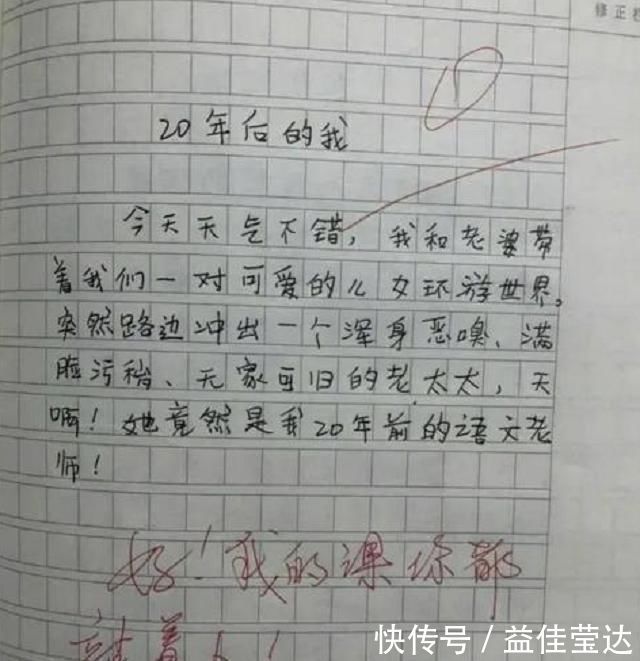 修正
20年后的我
今天天气不错，我和老婆带
着我们一对可爱的儿女环游世界。
突然路边冲出一个浑身恶嗅、满
脸污秽、无家可旧的老太太，天
啊！她竟然是我20年前的语文老
师！
好！我的课你都
站着上！
快传号 / 益佳莹达